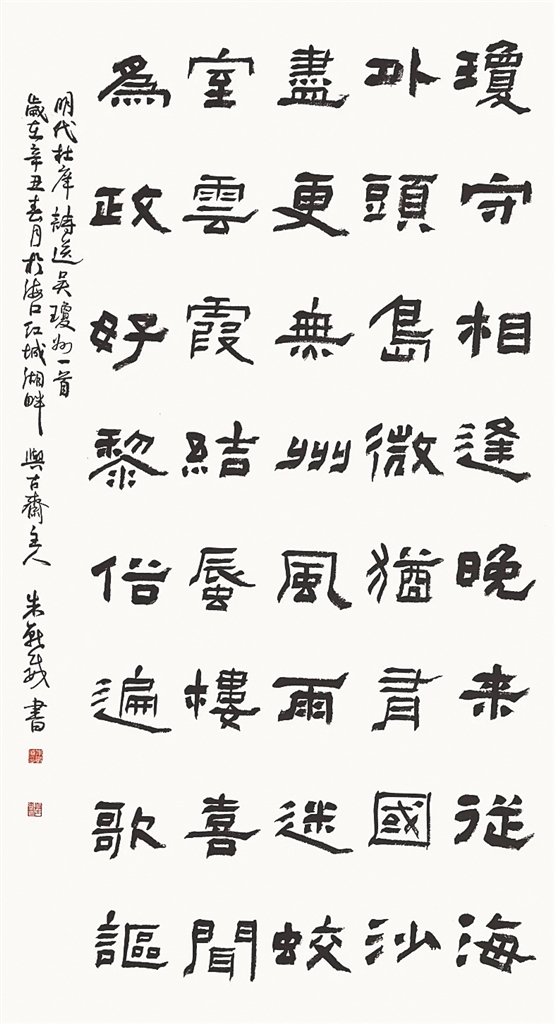 瓊守相逢晚來從海
外頭島微猶有國沙
盡更無州風雨迷蛟
室雲霞結蜃樓喜聞
為政好黎俗遍歌謳
明代杜庠詩送吳瓊州一首
歲在辛丑春月於海口紅城湖畔 與古齋主人 朱 書